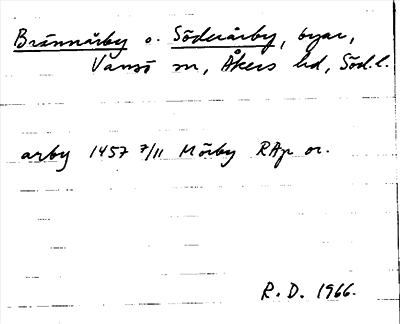 Brännårby o. Söderårby, byar,
Vansö sn, Åkers hd, Söd.l.
arby 1457 7/11 Mörby RAp or.
R. D. 1966.